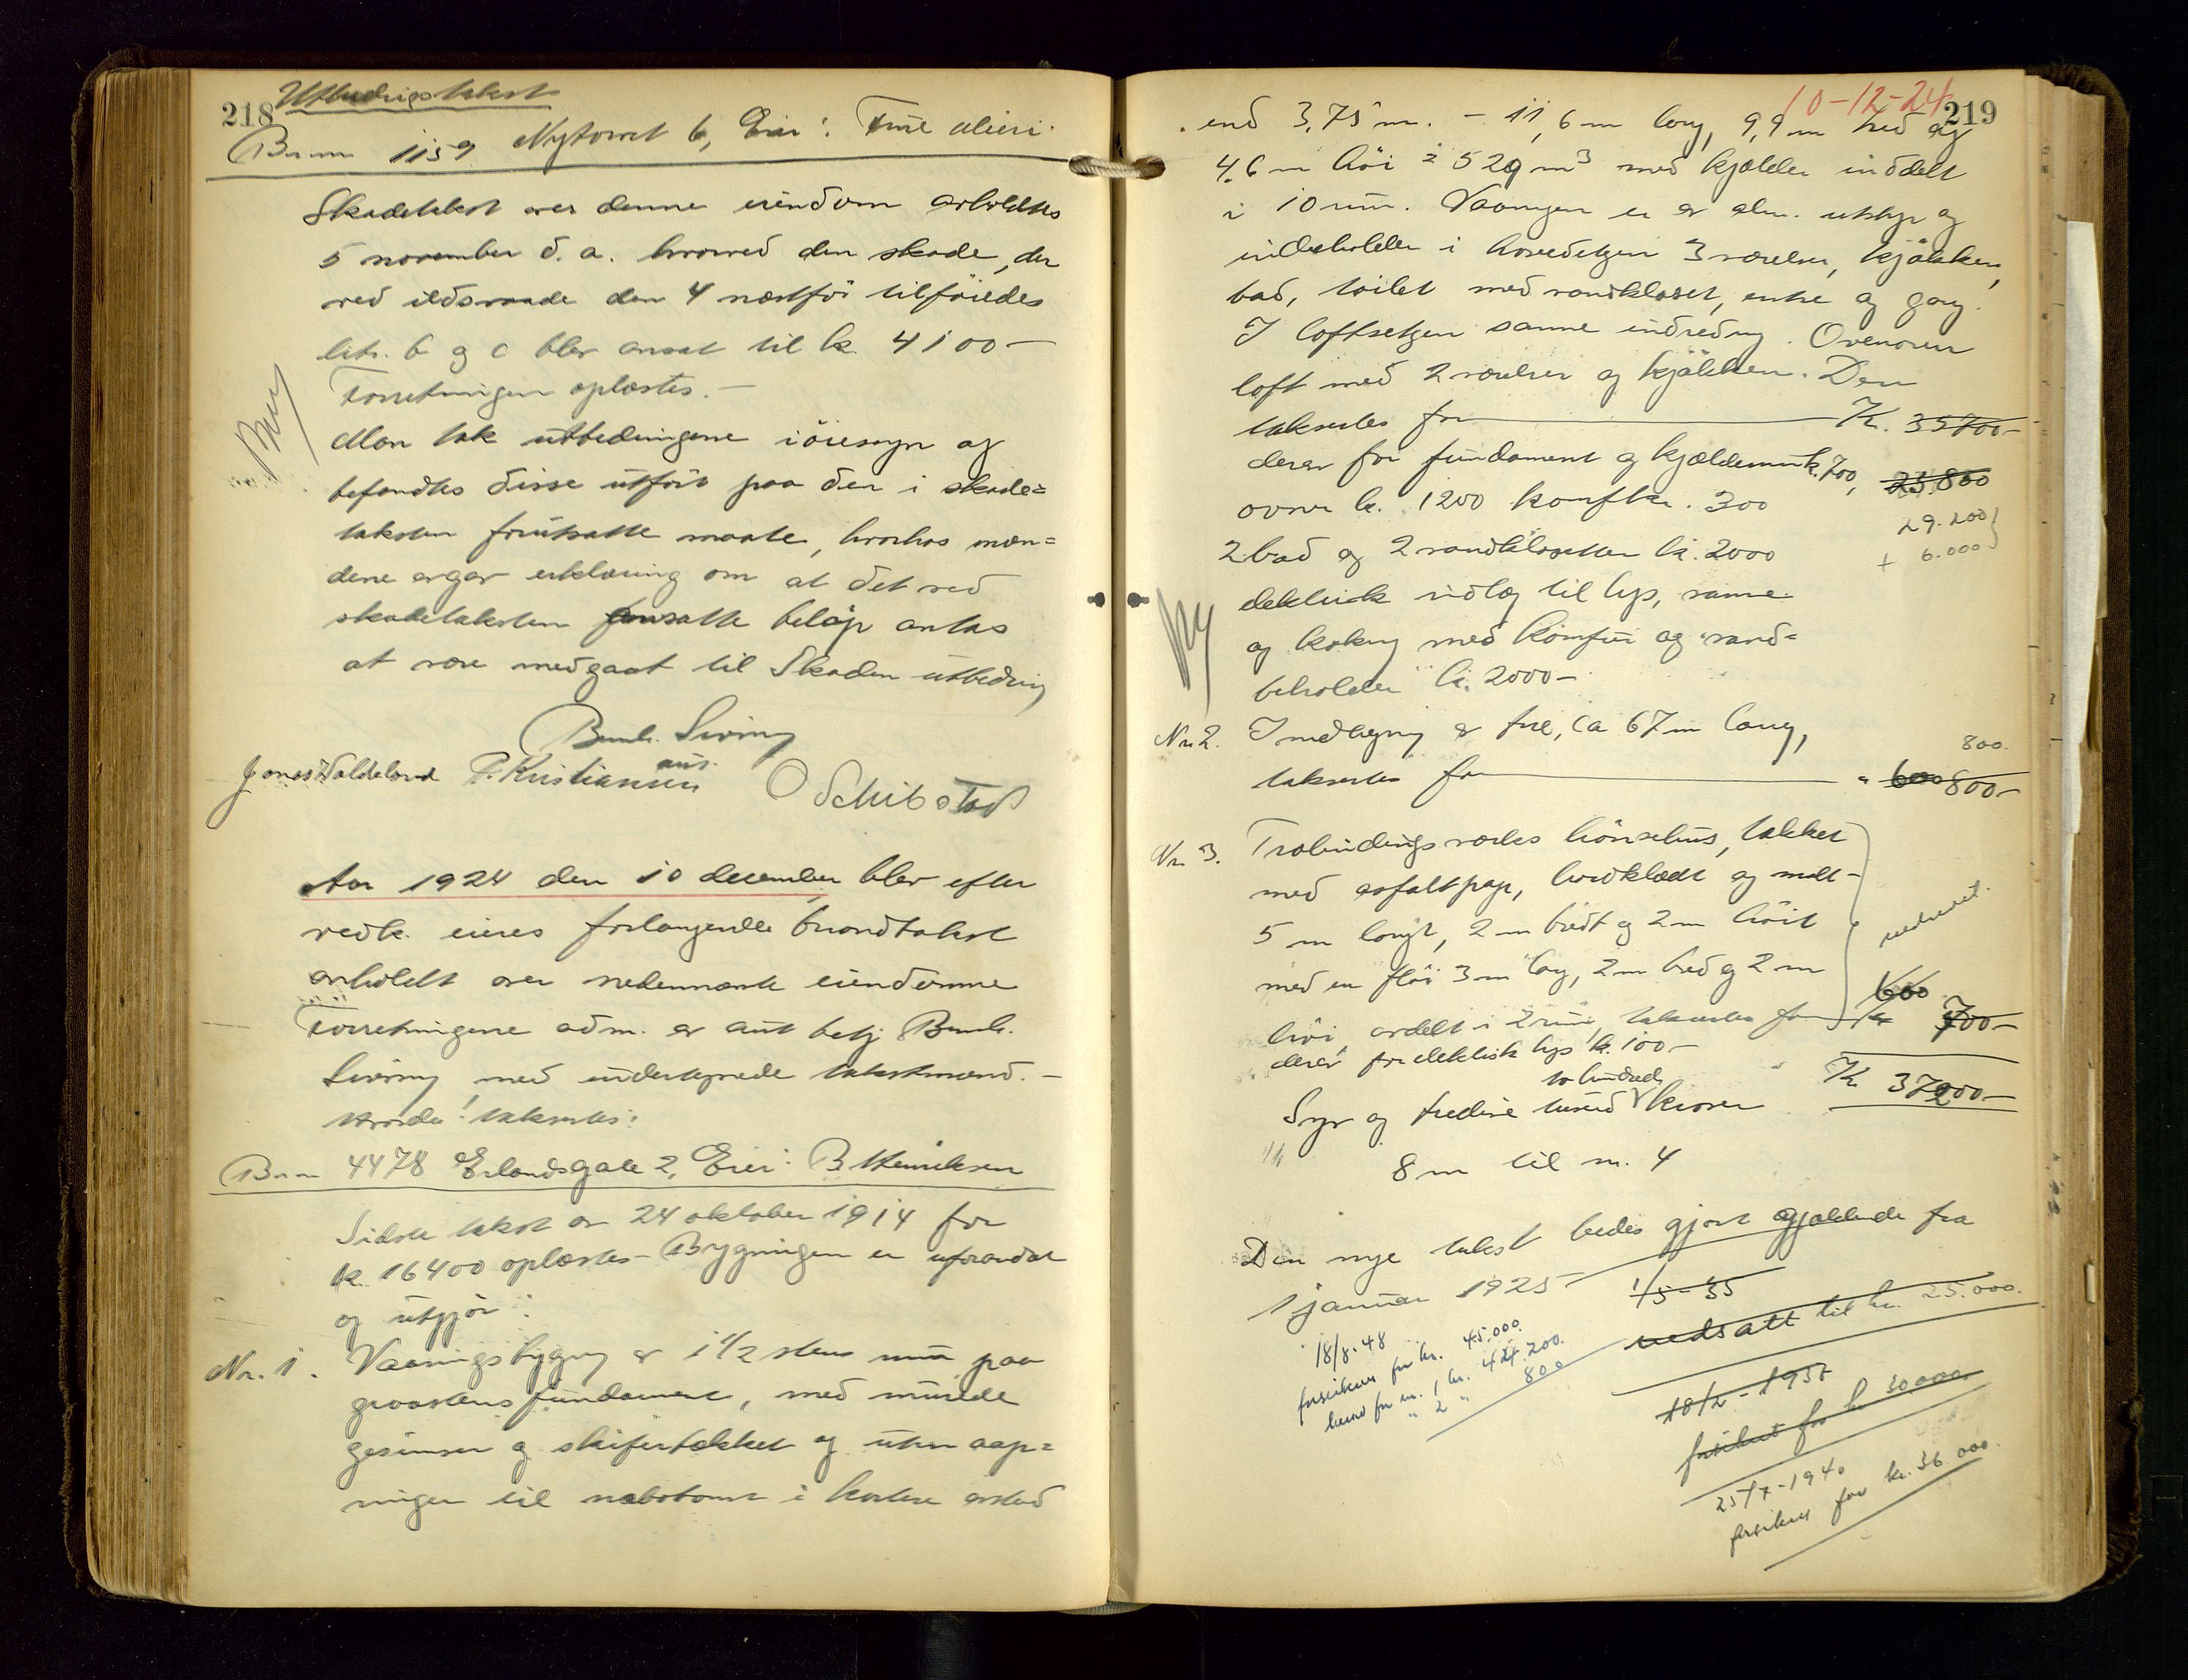 218 Utbedringstakst
Br.nr. 1159 Nytorvet 6, Eier: Frue Meieri.
Skadetakst over denne eiendom avholdtes
5 november d. a. hvorved den skade, der
ved ildsvaade den 4 næstfør tilføiedes
litr. b og c blev ansat til kr. 4100-
Forretningen oplæstes. -
Man tok utbedringene i øiesyn og
befandtes disse utført paa den i skade=
taksten forutsatte maate, hvorhos mæn=
dene avgav erklæring om at det ved
skadetaksten fastsatte beløp antas
at være medgaat til Skadens utbedring
Bernh. Sivring
aut.
Jonas Waldeland P. Kristiansen O Schibstad
Aar 1924 den 10 december blev efter
vedk. eieres forlangende brandtakst
avholdt over nedennævnte eiendomme
Forretningene adm. av aut. betj. Bernh.
Sivring med undertegnede takstmænd. -
Hvorda! taksertes:
Br.nr. 4478 Erlandsgate 2, Eier: B Henriksen
Sidste takst av 24 oktober 1914 for
kr. 16400 oplæstes - Bygningen er uforandret
og utgjør:
Nr. 1. Vaaningsbygning av 1 1/2 stens mur paa
graastensfundament, med murede
gesimser og skifertækket og uten aap=
ninger til nabotomt i kortere avstand
10-12-24 219
end 3,75 m. - 11,6 m lang, 9,9 m bred og
4,6 m høi = 529 m3 med kjælder inddelt
i 10 rum. Vaaningen er av alm. utstyr og
indeholder i hovedetagen 3 værelser, kjøkken,
bad, toilet med vandkloset, entre og gang.
I loftsetagen samme indredning. Ovenover
loft med 2 værelser og kjøkken. Den
taksertes for K. 35700-
derav for fundament og kjældermur k. 700, 23.800
ovner kr. 1200 komf kr. 300
29.200
2 bad og 2 vandklosetter kr. 2000
+ 6.000
elektrisk indlæg til lys, varme
og kokning med komfur og vand=
beholder kr. 2000-
Nr 2. Indhegning av træ, ca 67 m lang,
800.
taksertes for " 600 800-
Nr 3. Træbindingsverks hønsehus, tækket
med asfaltpap, bordklædt og malt -
5 m langt, 2 m bredt og 2 m høit
nedrevet
med en fløi 3 m lang, 2 m bred og 2 m
600
høi, avdelt i 2 rum, taksertes for kr 700-
derav for elektrisk lys kr. 100-
K 37200-
to hundrede
Syv og tredive tusind kroner
8 m til nr. 4
Den nye takst bedes gjort gjældende fra
1 januar 1925 -
1/5-35
nedsatt til kr. 25.000.
18/8-48
forsikres for kr. 45.000.
herav for nr. 1 kr. 44.200.
" 2 " 800
18/2-1938
forsikret for kr 30000.
25/7-1940
forsikres for kr. 36 000.